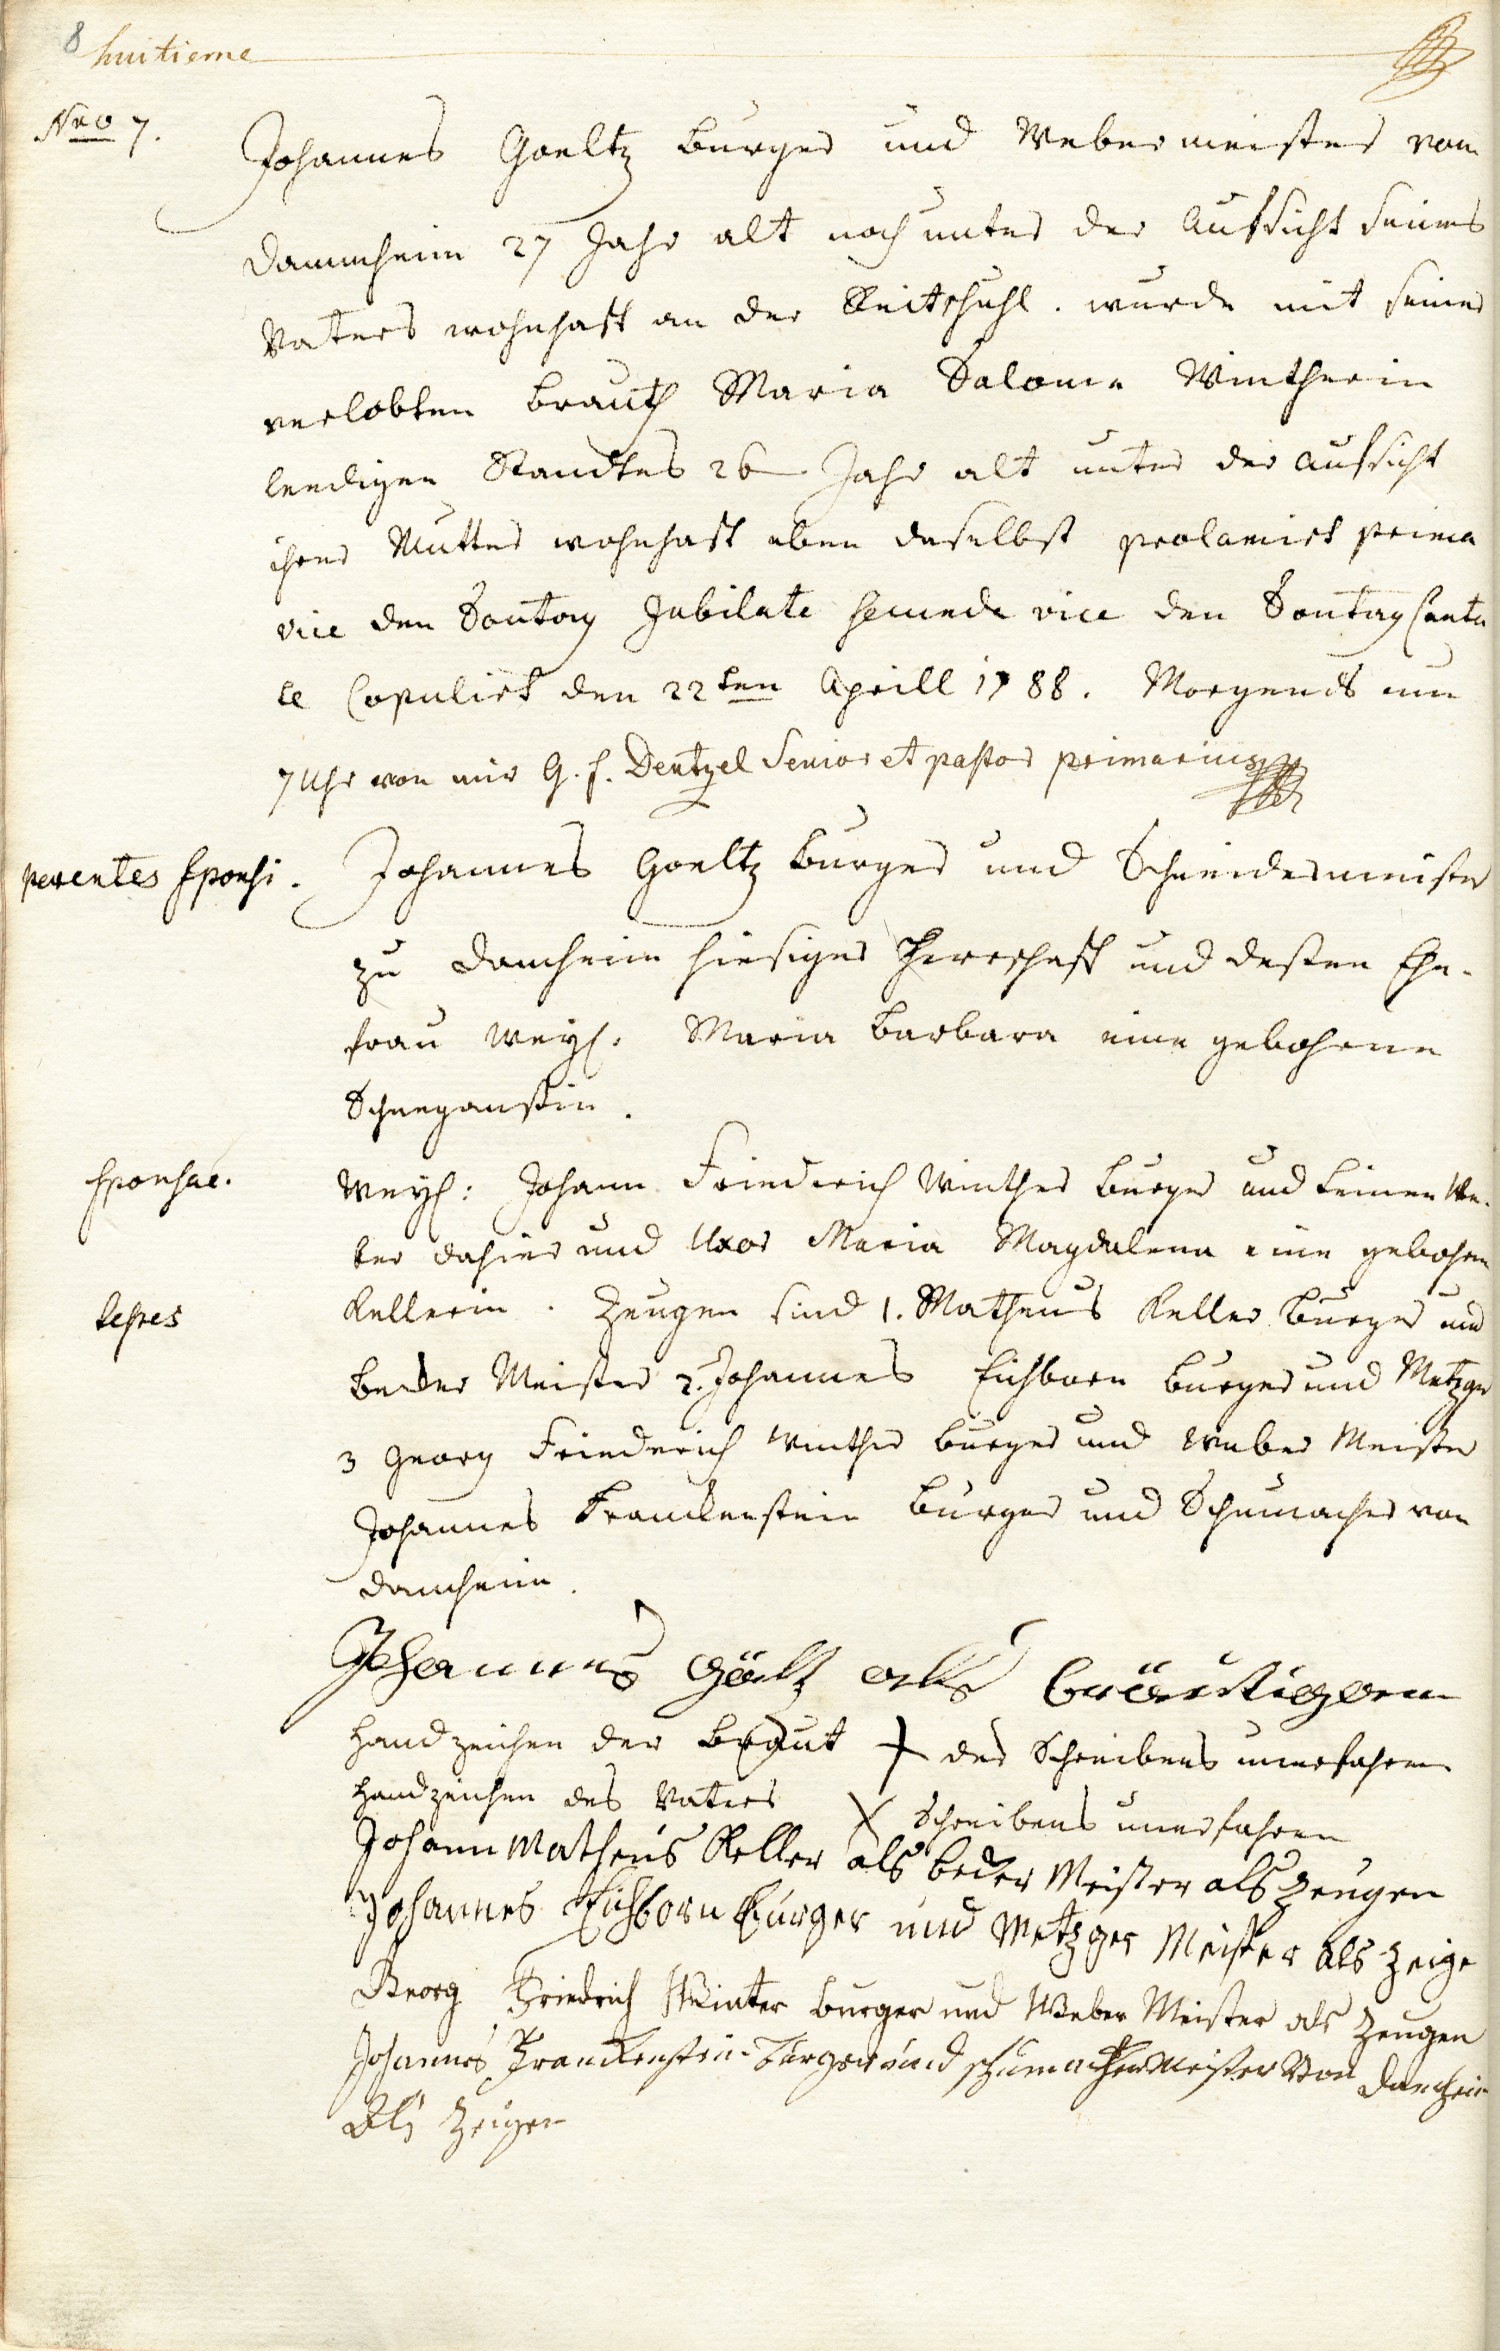 8 huitieme
Nro 7.
Johannes Goeltz burger und Webermeister von
Dammheim 27 Jahr alt noch unter der Aufsicht seines
Vaters wohnhaft an der Reitschuhl. wurde mit seiner
verlobten Brauth Maria Salome Wintherin
leedigen Standtes 26 Jahr alt unter der aufsicht
ihrer Mutter wohnhaft eben daselbst prolamirt prima
vice den Sontag Jubilate secunda vice den Sontag Canta
te Copulirt den 22ten Aprill 1788. Morgends um
7 Uhr von mir G. f. Dentzel Senior et pastor primarius
parentes sponsi. Johannes Goeltz burger und Schneidermeister
zu Damheim hiesiger Herrschaft und dessen Ehe-
frau weyl. Maria Barbara eine gebohrne
Schneeganssin.
sponsae. weyl: Johann Friederich Winther burger und Leinen We-
ber dahier und Uxor Maria Magdalena eine gebohrne
Kellerin. Zeugen sind 1. Matheus Keller burger und
testes
becker Meister 2. Johannes Eichborn burger und Metzger
3 Georg Friederich Winther burger und Weber Meister
Johannes Franckenstein burger und Schumacher von
Damheim.
Johannes Göltz als breütigam
Handzeichen der braut + des Schreibens unerfahren
Handzeichen des Vaters X Schreibens unerfahren
Johann Matheüs Keller als becker Meister als Zeugen
Johannes Eichborn burger und Metzger Meister als Zeige
Georg Friedrich Winter burger und Weber Meister als Zeugen
Johannes Franckenstein bürger und schumacher Meister Von Damheim
Als Zeugen